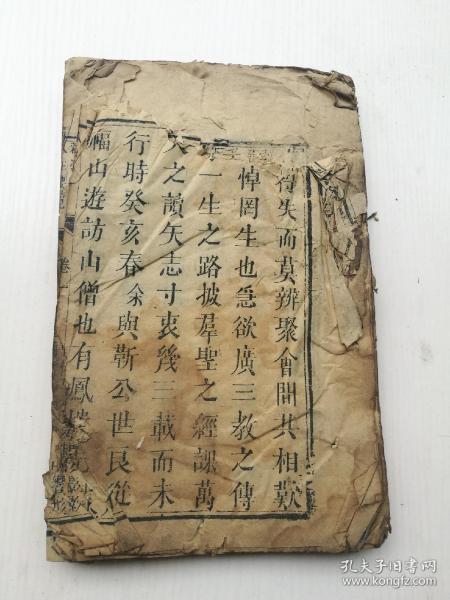 得失而莫辨聚會間共相歎
悼罔生也急欲廣三教之傳
一生之路披羣聖之經課萬
人之讀矢志寸衷幾三載而未
行時癸亥春余與靳公世良從
福山遊訪山僧也有鳳
卷一
孔夫子旧书网
www.kongfz.com